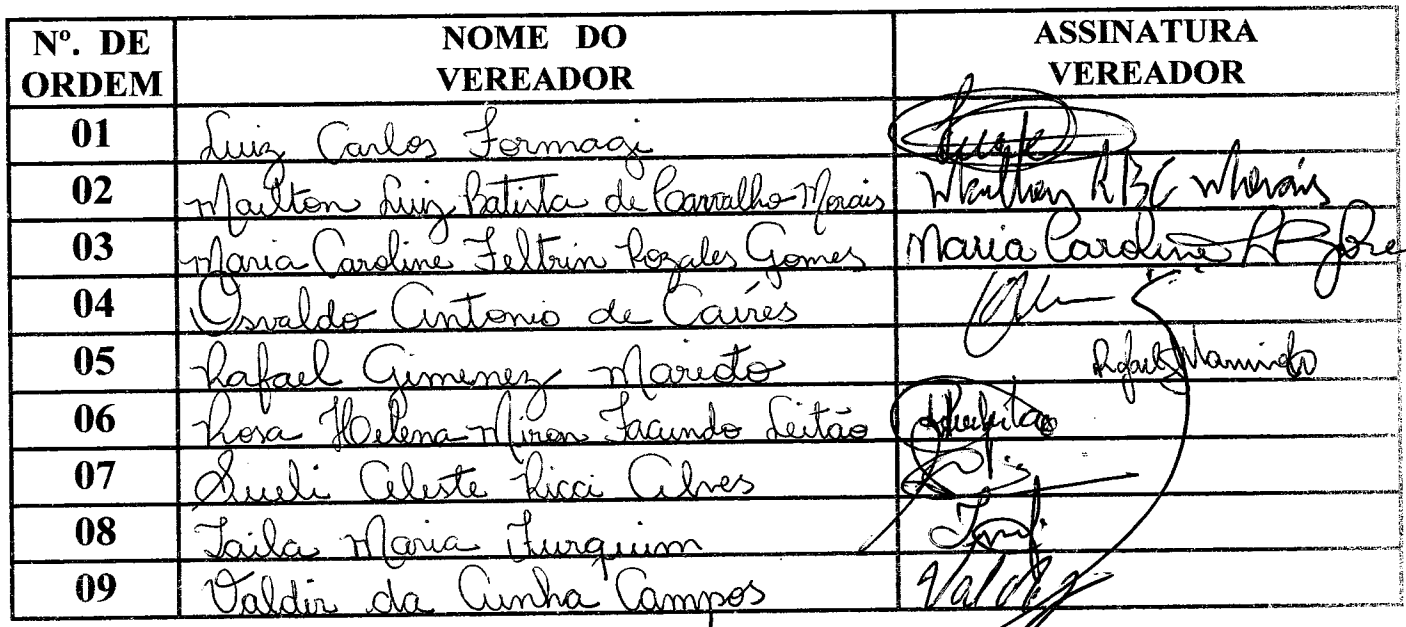 Nº. DE ORDEM NOME DO VEREADOR ASSINATURA VEREADOR
01 Luiz Carlos Formagi
02 Mailton Luiz Batista de Carvalho Morais Mailton RBC Morais
03 Maria Caroline Feltrin Rozales Gomes Maria Caroline
04 Osvaldo Antonio de Caires
05 Rafael Gimenez Marioto Rafael
06 Rosa Helena Miron Facundo Leitão
07 Sueli Celeste Ricci Alves
08 Taila Maria Furquim
09 Valdir da Cunha Campos